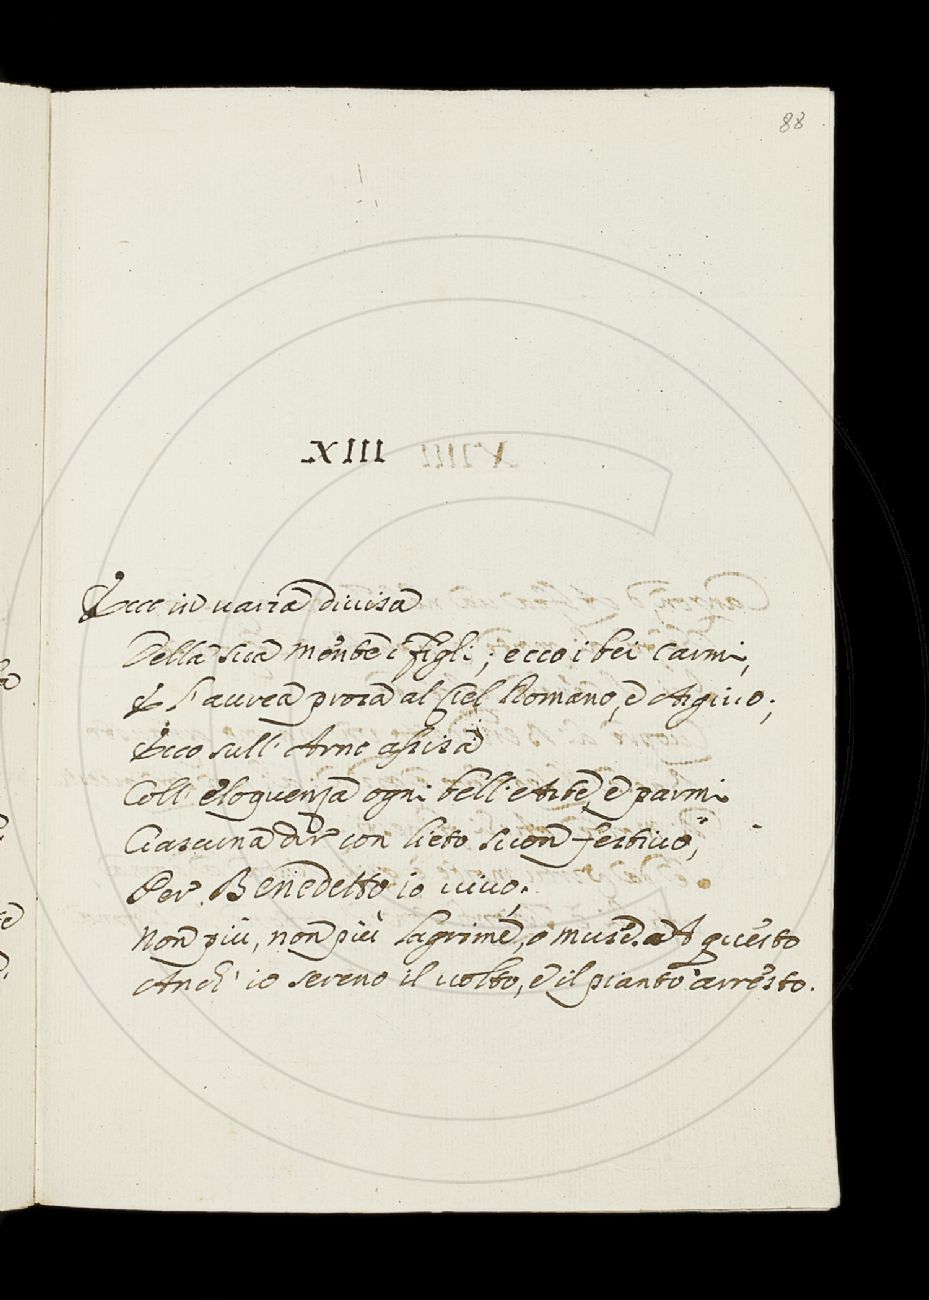 88
XIII
Ecco in varia divisa
Della sua mente i figli; ecco i bei carmi,
E l'aurea prosa al Ciel Romano, e Argivo;
Ecco sull' Arno assisa
Coll' eloquenza ogni bell' Arte, e parmi
Ciascuna dir con lieto suon festivo,
Per Benedetto io vivo.
Non più, non più lagrime, o Muse. A questo
Anch' io sereno il volto, e il pianto arresto.